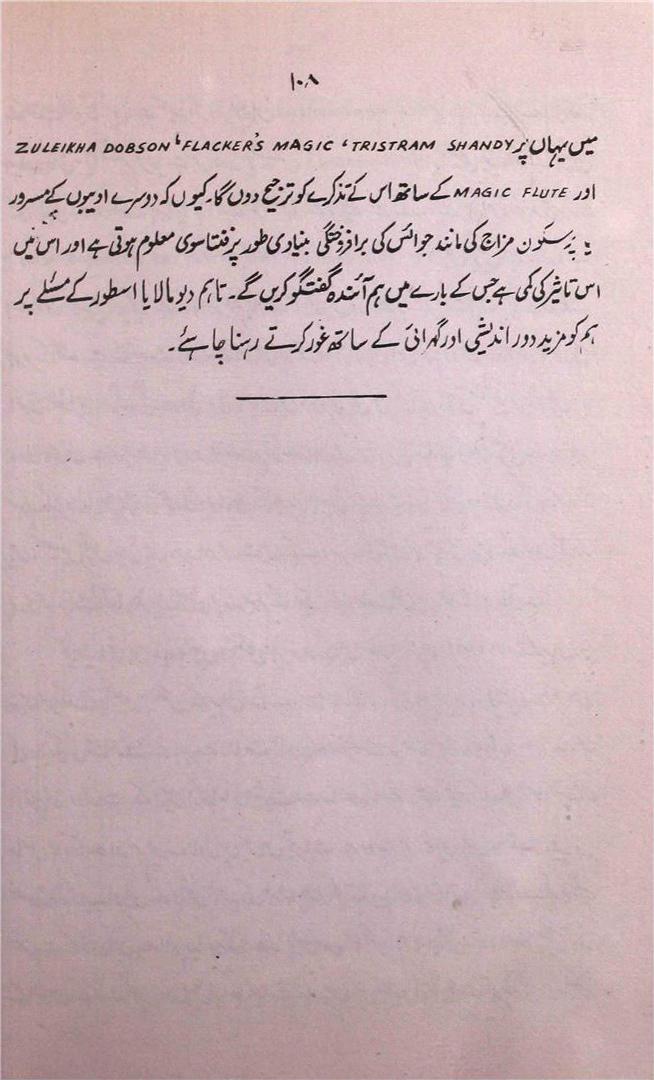 ۱۰۸
میں یہاں پر TRISTRAM SHANDY، FLACKER'S MAGIC، ZULEIKHA DOBSON
اور MAGIC FLUTE کے ساتھ اس کے تذکرے کو ترجیح دوں گا۔ کیوں کہ دوسرے ادیبوں کے مسرور
یا پُرسکون مزاج کی مانند جوائس کی برافروختگی بنیادی طور پر فنتاسوی معلوم ہوتی ہے اور اس میں
اس تاثیر کی کمی ہے جس کے بارے میں ہم آئندہ گفتگو کریں گے۔ تاہم دیومالا یا اسطور کے مسئلے پر
ہم کو مزید دور اندیشی اور گہرائی کے ساتھ غور کرتے رہنا چاہئے۔